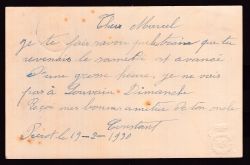 Cher Marcel
je te fais savoir que le train que tu
reviendra le samedi est avancé
d'une grosse heure, je ne vais
pas à Louvain Dimanche
Reçois mes bonnes amitiés de ton oncle
Constant
le 19-2-1930